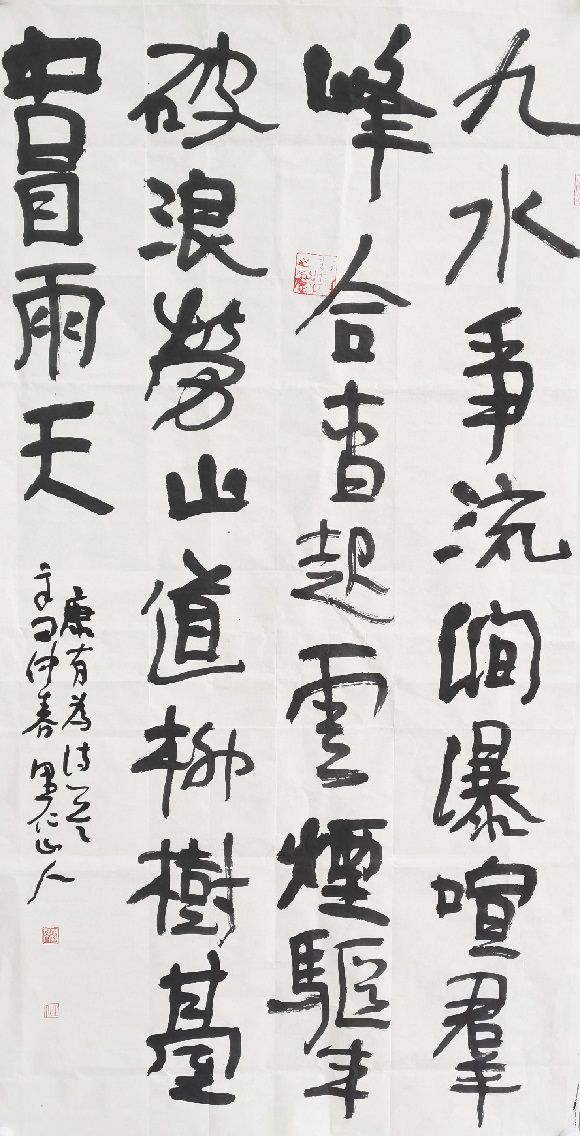 九水爭流澗瀑喧羣
峰合沓起雲煙驅車
破浪勞山道柳樹臺
中冒雨天
康有為詩一首
辛丑仲春墨仁山人